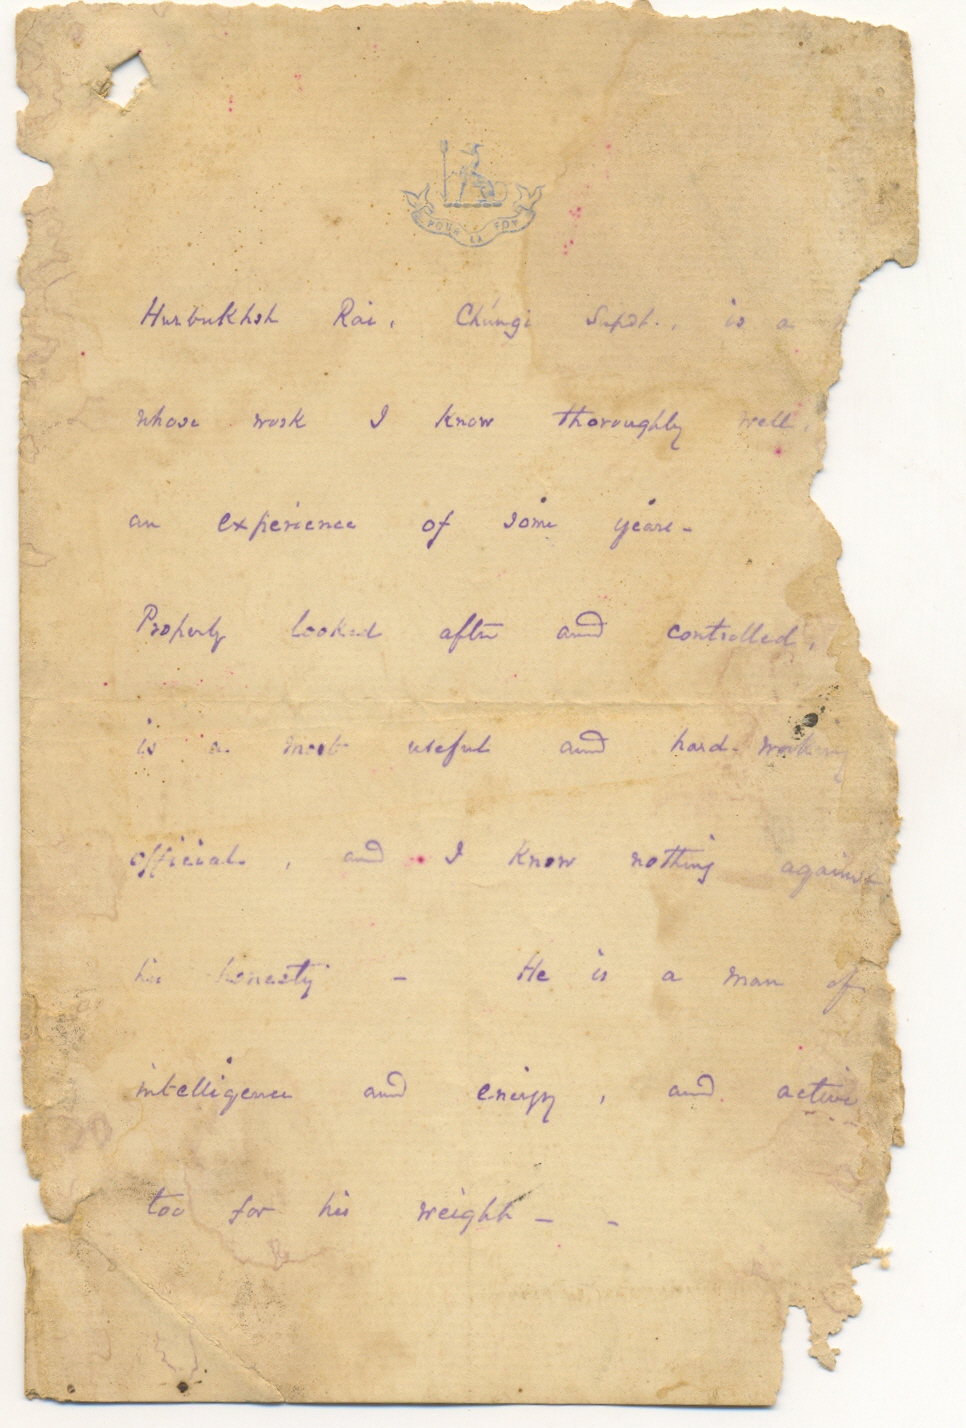 POUR LA FOY
Hurbukhsh Rai, Chungi Supdt., is a
whose work I know thoroughly well,
an experience of some years -
Properly looked after and controlled,
is a most useful and hard-working
official, and I know nothing against
his honesty - He is a man of
intelligence and energy, and active
too for his weight - -